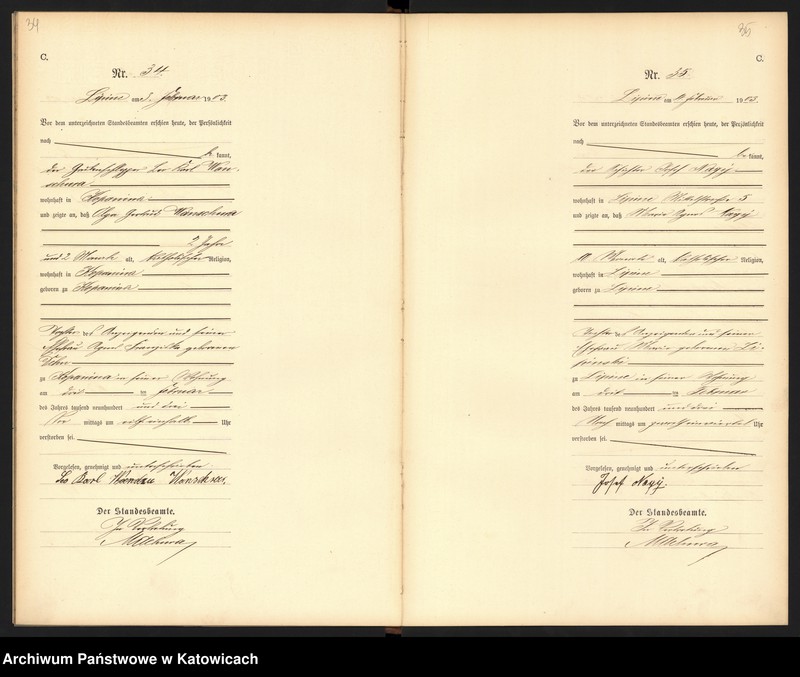 34
C.
Nr. 34.
Lipine am Februar 1903.
Vor dem unterzeichneten Standesbeamten erschien heute, der Persönlichkeit
nach
be kannt,
der Leo Karl Wan-
wohnhaft in Kopanina
und zeigte an, daß Olga Gertrud
2 Jahre
und 2 Monate alt, katholischer Religion,
wohnhaft in Kopanina
geboren zu Kopanina
Tochter des Anzeigenden und seiner
Ehefrau Agnes Franziska geborenen
zu Kopanina in seiner Wohnung
am drei ten Februar
des Jahres tausend neunhundert und drei
Vor mittags um elf einhalb Uhr
verstorben sei.
Vorgelesen, genehmigt und unterschrieben
Leo Karl
Der Standesbeamte.
In Vertretung
35
C.
Nr. 35.
Lipine am Februar 1903.
Vor dem unterzeichneten Standesbeamten erschien heute, der Persönlichkeit
nach
be kannt,
der Josef Nagy
wohnhaft in Lipine Mittelstraße 5
und zeigte an, daß Maria Agnes Nagy
Monate alt, katholischer Religion,
wohnhaft in Lipine
geboren zu Lipine
Tochter des Anzeigenden und seiner
Ehefrau Marie geborenen
zu Lipine in seiner Wohnung
am drei ten Februar
des Jahres tausend neunhundert und drei
Nach mittags um Uhr
verstorben sei.
Vorgelesen, genehmigt und unterschrieben
Josef Nagy.
Der Standesbeamte.
In Vertretung
Archiwum Państwowe w Katowicach